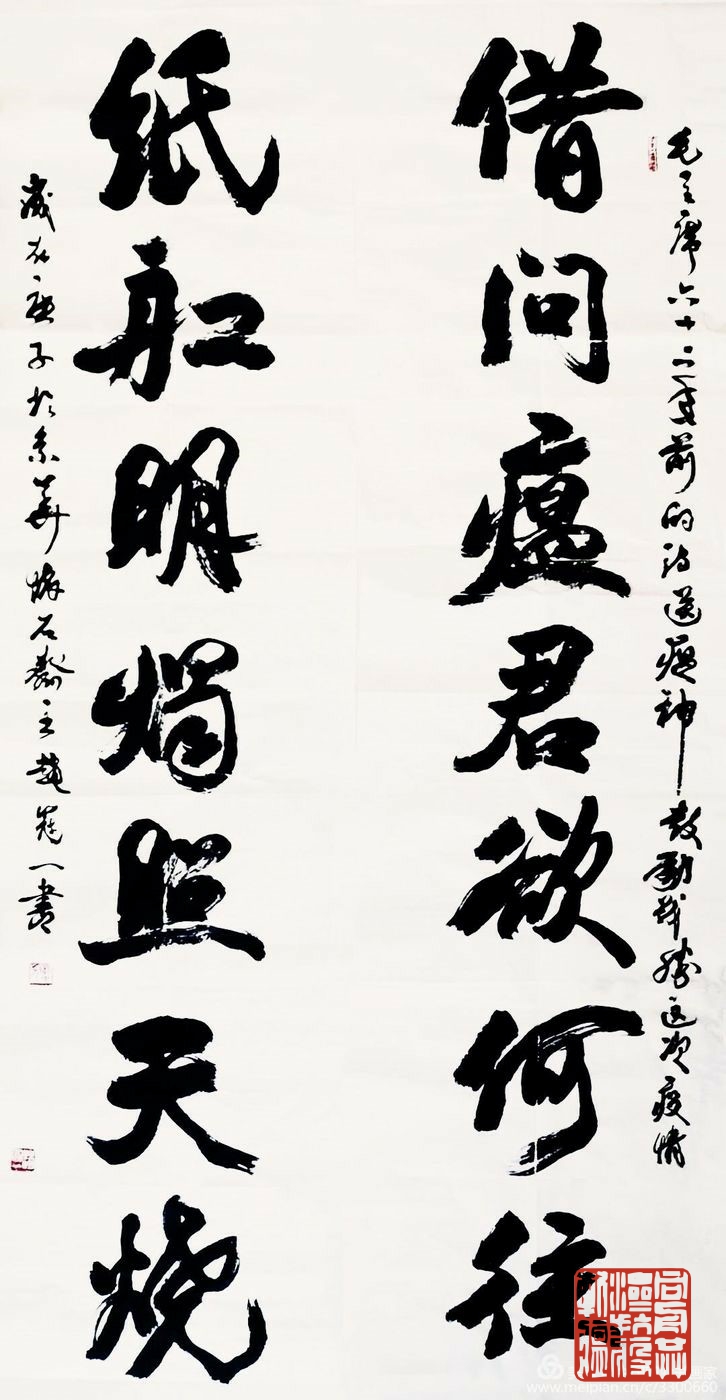 毛主席六十二年前的诗送瘟神鼓励战胜这次疫情
借问瘟君欲何往
纸舡明燭照天烧
岁在庚子于京华石斋主赵一书
www.meipian.cn/c/3300660